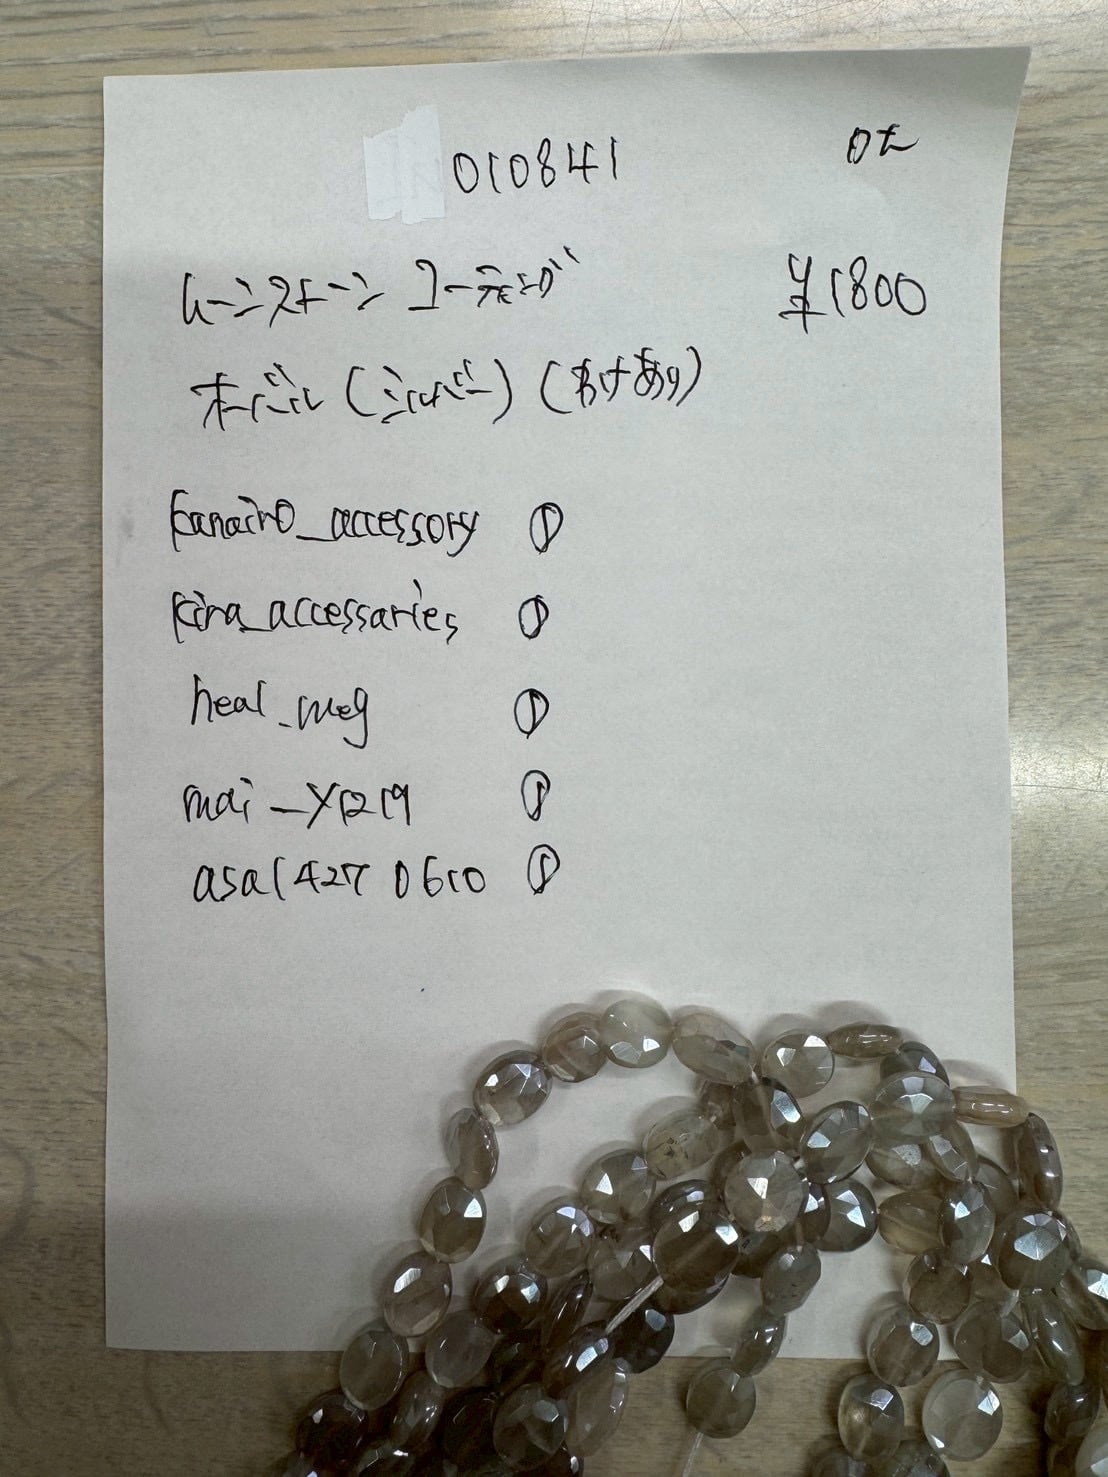 010841
0左
ムーンストーン コーティング ¥1800
オーバル (シルバー) (わけあり)
kanairo_accessory ①
kira_accessaries ①
heal_meg ①
mai_y1219 ①
asa1427 0610 ①